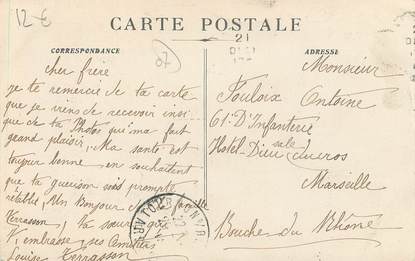 12 €
CARTE POSTALE
21
CORRESPONDANCE
ADRESSE
07
cher frère
je te remercie de ta carte
que je viens de recevoir insi
que de ta Photo qui ma fait
grand plaisir, Ma santé est
toujour bonne en souhaitent
que ta guerison sois prompte
rétablie, Un Bonjour de famille
Terrasson, ta sœur que
t'embrasse, ses
Louise Terrasson
Monsieur
Antoine
61 D'Infanterie
Hotel-Dieu sale
Marseille
Bouches du Rhône